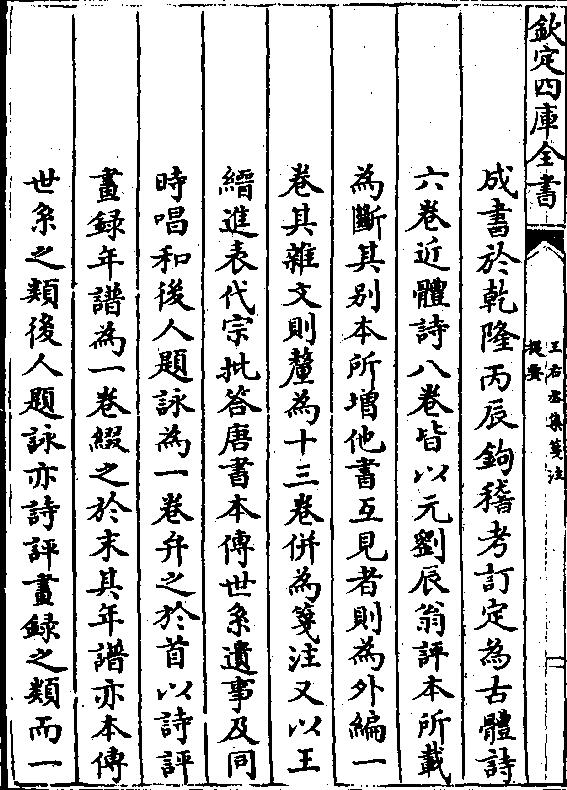 欽定四庫全書
王右丞集箋注
提要
一
成書於乾隆丙辰鉤稽考訂定為古體詩
六卷近體詩八卷皆以元劉辰翁評本所載
為斷其别本所增他書互見者則為外編一
卷其雜文則釐為十三卷併為箋注又以王
縉進表代宗批答唐書本傳世系遺事及同
時唱和後人題詠為一卷弁之於首以詩評
畫録年譜為一卷綴之於末其年譜亦本傳
世系之類後人題詠亦詩評畫録之類而一